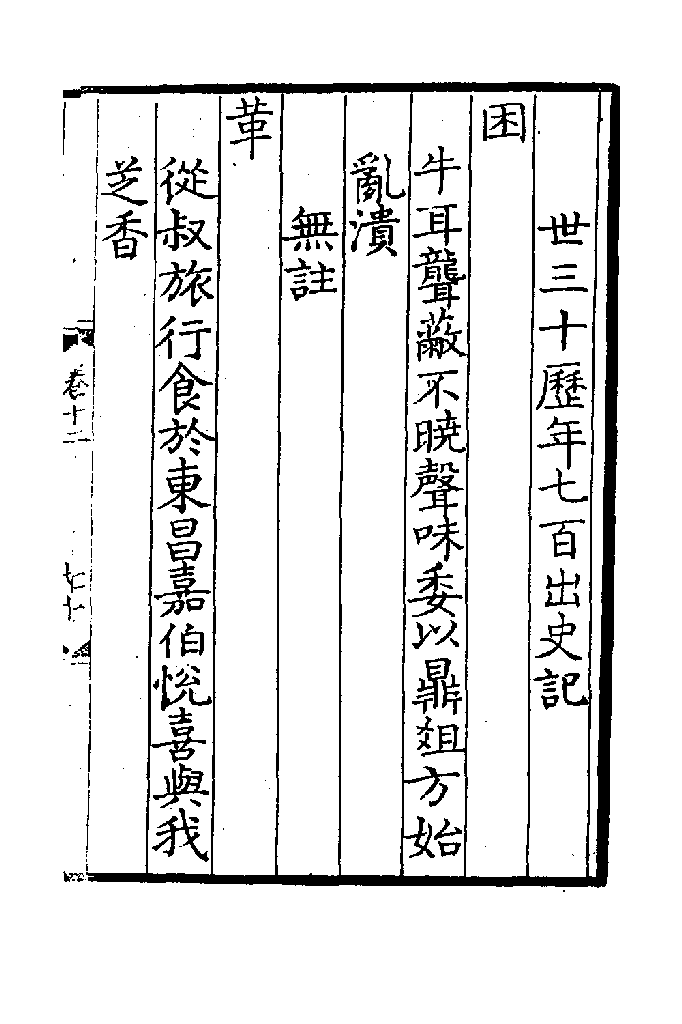 世三十歷年七百出史記
困
牛耳聾蔽不曉聲味委以鼎俎方始
亂潰
無註
革
從叔旅行食於東昌嘉伯悅喜與我
芝香
卷十二